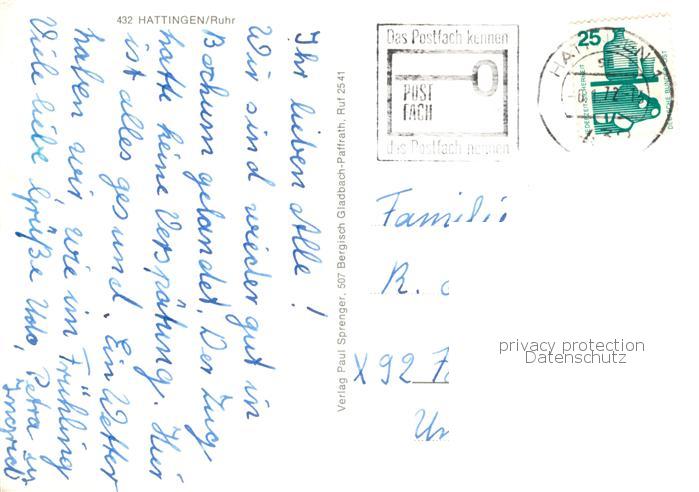 432 HATTINGEN/Ruhr
Ihr lieben Alle!
Wir sind wieder gut in
Bochum gelandet. Der Zug
hatte keine Verspätung. Hier
ist alles gesund. Ein Wetter
haben wir wie im Frühling
Viele liebe Grüße Udo, Petra u.
Ingrid
Verlag Paul Sprenger, 507 Bergisch Gladbach-Paffrath, Ruf 2541
Das Postfach kennen
POST
FACH
das Postfach nennen
HATTINGEN
25
DEUTSCHE BUNDESPOST
Familie
R.
X92
privacy protection
Datenschutz